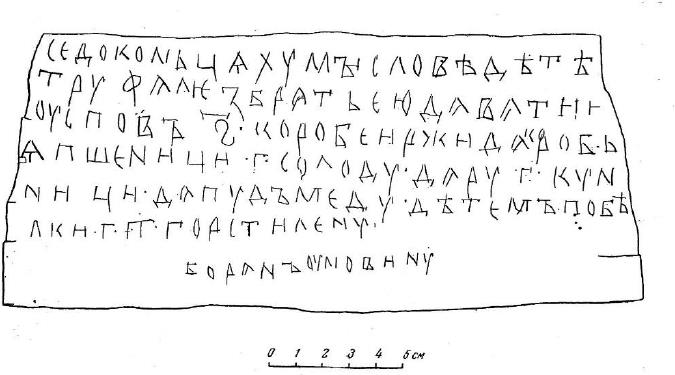 СЕДОКОНЬЦѦХУМЪІСЛОВѢДѢТѢ
ТРУФАЛЕЗБРАТЬЕЮДАВАТИ
ОУСПОВЪ Ѕ·КОРОБЕИРЖИДАКОРОБ·Ь
ѦПШЕНИЦИ·Г·СОЛОДУ·ДАРУ·Г·КУН
ИЦИ·ДАПУДЪМЕДУ·ДѢТЕМЪ·ПОБѢ
ЛКИ·Г·Г҃·ГОРСТИЛЕНУ
БОРАНЪОУНОВИНУ
0 1 2 3 4 5 см